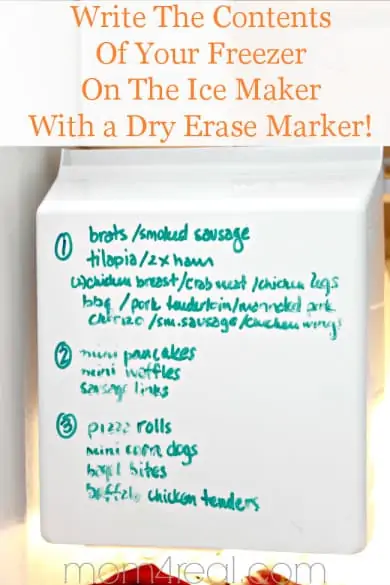 Write The Contents
Of Your Freezer
On The Ice Maker
With a Dry Erase Marker!
① brats/smoked sausage
tilapia/2x ham
(2)chicken breast/crab meat/chicken legs
bbq/pork tenderloin/marinated pork
chorizo/sm.sausage/chicken wings
② mini pancakes
mini waffles
sausage links
③ pizza rolls
mini corn dogs
bagel bites
buffalo chicken tenders
mom4real.com